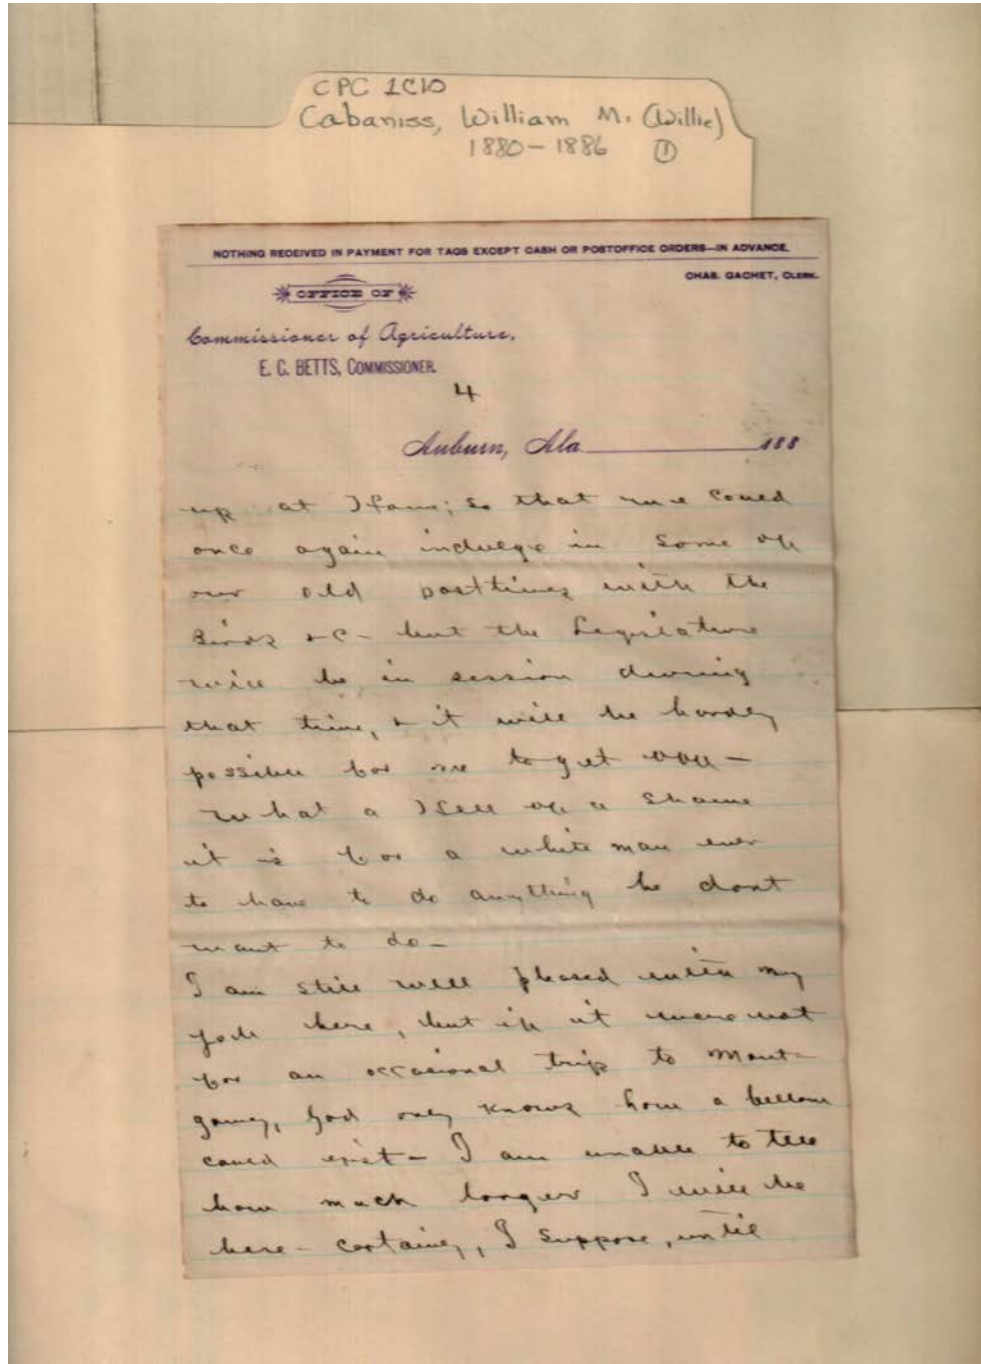 CPC 1C10
Cabaniss, William M. (Willie)
1880-1886 ①
NOTHING RECEIVED IN PAYMENT FOR TAGS EXCEPT CASH OR POSTOFFICE ORDERS—IN ADVANCE.
CHAS. GACHET, CLERK.
OFFICE OF
Commissioner of Agriculture,
E. C. BETTS, COMMISSIONER.
4
Auburn, Ala. 188
up at Home; so that we could
once again indulge in some of
our old pasttimes with the
Birds &C - but the Legislature
will be in session during
that time, & it will be hardly
possible for me to get off -
What a Hell of a Shame
it is for a white man ever
to have to do anything he dont
want to do -
I am still well pleased with my
job here, but if it were not
for an occasional trip to Mont-
gomery, God only knows how a fellow
could exist - I am unable to tell
how much longer I will be
here - certainly, I suppose, until